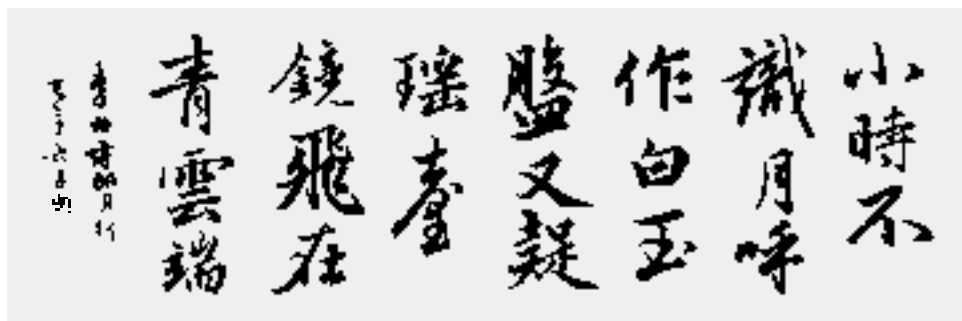 小時不
識月呼
作白玉
盤又疑
瑤臺
鏡飛在
青雲端
李白詩朗月行